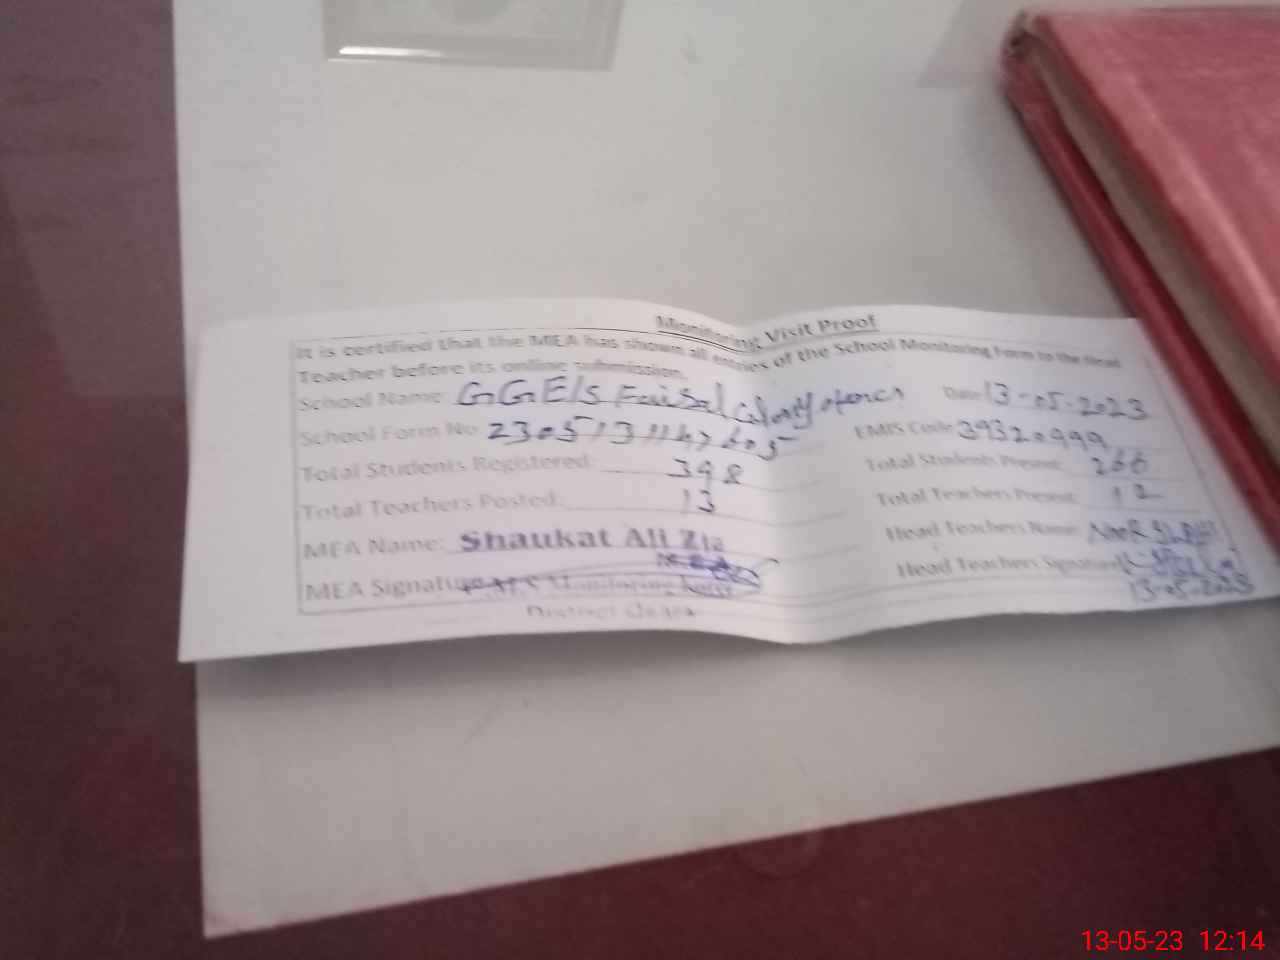 Monitoring Visit Proof
It is certified that the MEA has shown all entries of the School Monitoring Form to the Head
Teacher before its online submission.
School Name: GGE/S Faisal Colony Date: 13-05-2023
School Form No EMIS Code: 39320999
Total Students Registered: 398 Total Students Present: 266
Total Teachers Posted: 13 Total Teachers Present: 12
MEA Name: Shaukat Ali Zia Head Teachers Name: NooR
MEA Signature Monitoring Head Teachers Signature
13-05-2023
District
13-05-23 12:14